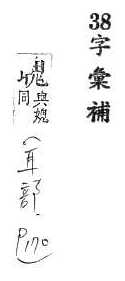 38字彙補
與魏同(耳部. P170)